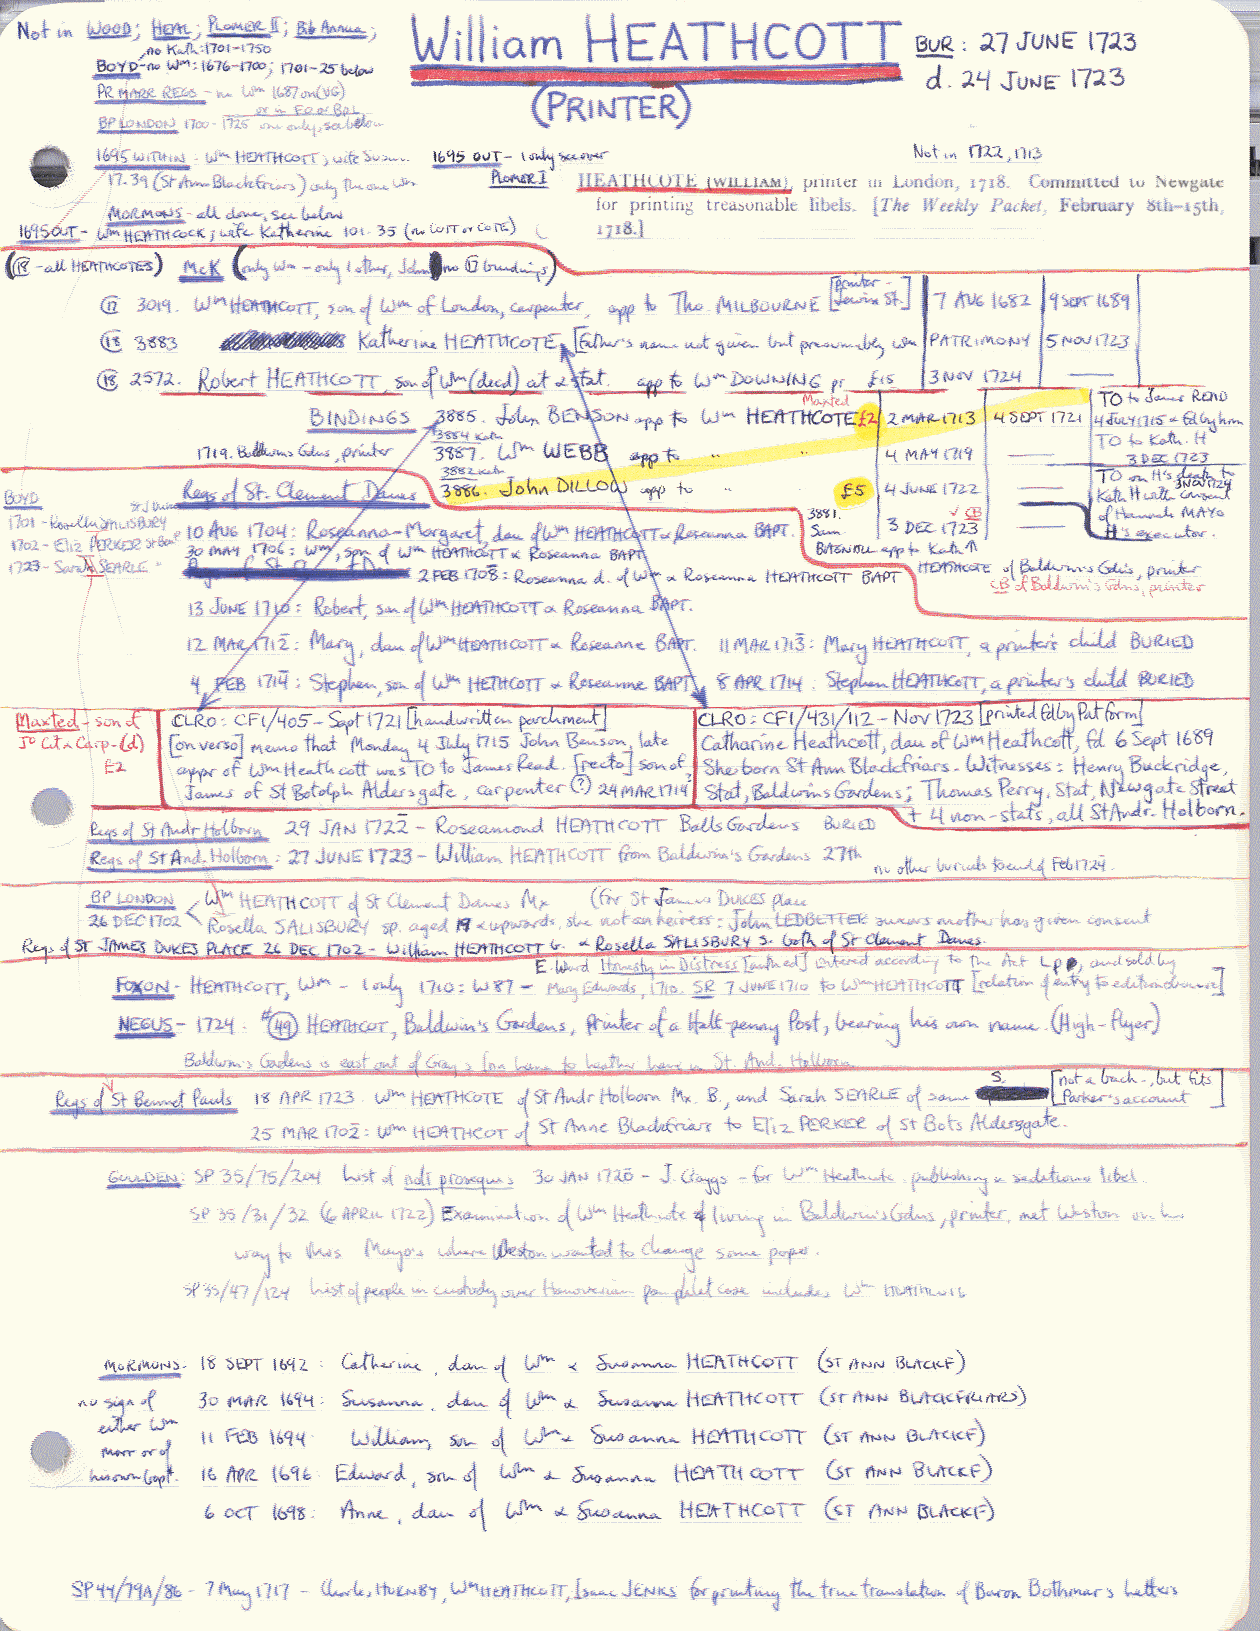 Not in WOOD; HEAL; PLOMER II; Bib Annua;
no Kath: 1701-1750
BOYD - no Wm: 1676-1700; 1701-25 below
PR MARR REGS - no Wm 1687 on (VG)
or in F.O. or BpL
BP LONDON 1700-1725 one only, see below
William HEATHCOTT
(PRINTER)
BUR: 27 JUNE 1723
d. 24 JUNE 1723
1695 WITHIN - Wm HEATHCOTT; wife Susan.
17.39 (St Ann Blackfriars) only the one Wm
1695 OUT - 1 only see over
Not in 1722, 1713
PLOMER I
HEATHCOTE (WILLIAM), printer in London, 1718. Committed to Newgate
for printing treasonable libels. [The Weekly Packet, February 8th-15th,
1718.]
MORMONS - all done, see below
1695 OUT - Wm HEATHCOCK; wife Katherine 101.35 (no COTT or COTE)
(18 - all HEATHCOTES) McK (only Wm - only 1 other, John no 17 bindings)
17 3019. Wm HEATHCOTT, son of Wm of London, carpenter, app to Tho. MILBOURNE [printer - Jewin St.] 7 AUG 1682 9 SEPT 1689
18 3883 Katherine HEATHCOTE [Father's name not given but presumably Wm PATRIMONY 5 NOV 1723
18 2572. Robert HEATHCOTT, son of Wm (decd) at 2 stat. app to Wm DOWNING pr £15 3 NOV 1724
BINDINGS 3885. John BENSON app to Wm HEATHCOTE Maxted £2 2 MAR 1713 4 SEPT 1721
TO to James READ
4 JULY 1715 & Fd by him
3884 Kath
1719. Baldwins Gdns, printer 3887. Wm WEBB app to " " 4 MAY 1719
TO to Kath. H
3 DEC 1723
3882 Kath
3886. John DILLOW app to " £5 4 JUNE 1722
TO on H's death to
3 NOV 1724
Kath H with consent
of Hannah MAYO
H's executor.
3881.
Sam 3 DEC 1723 CB
BAGNALL app to Kath
HEATHCOTE of Baldwin's Gdns, printer
CB of Baldwin's Gdns, printer
BOYD
1701 - Rosella SALISBURY St J Duke
1702 - Eliz PERKER St Benet
1723 - Sarah SEARLE "
Regs of St. Clement Danes
10 AUG 1704: Roseanna-Margaret, dau of Wm HEATHCOTT & Roseanna BAPT.
30 MAY 1706: Wm, son of Wm HEATHCOTT & Roseanna BAPT
2 FEB 1708: Roseanna d. of Wm & Roseanna HEATHCOTT BAPT
13 JUNE 1710: Robert, son of Wm HEATHCOTT & Roseanna BAPT.
12 MAR 1712: Mary, dau of Wm HEATHCOTT & Roseanne BAPT. 11 MAR 1713: Mary HEATHCOTT, a printer's child BURIED
4 FEB 1714: Stephen, son of Wm HETHCOTT & Roseanne BAPT. 8 APR 1714: Stephen HEATHCOTT, a printer's child BURIED
Maxted - son of
Jo Cit & Carp - (d)
£2
CLRO: CF1/405 - Sept 1721 [handwritten parchment]
[on verso] memo that Monday 4 July 1715 John Benson, late
appr of Wm Heathcott was TO to James Read. [recto] son of
James of St Botolph Aldersgate, carpenter (?) 24 MAR 1714?
CLRO: CF1/431/112 - Nov 1723 [printed Fd by Pat form]
Catharine Heathcott, dau of Wm Heathcott, fd 6 Sept 1689
She born St Ann Blackfriars. Witnesses: Henry Buckridge,
Stat, Baldwins Gardens; Thomas Perry, Stat, Newgate Street
+ 4 non-stats, all St Andr. Holborn.
Regs of St Andr Holborn 29 JAN 1722 - Roseamond HEATHCOTT Balls Gardens BURIED
Regs of St And. Holborn: 27 JUNE 1723 - William HEATHCOTT from Baldwin's Gardens 27th
no other burials to end of Feb 1724
BP LONDON
26 DEC 1702
Wm HEATHCOTT of St Clement Danes Mx (for St James DUKES place
Rosella SALISBURY sp. aged 19 & upwards, she not an heiress: John LEDBETTER swears mother has given consent
Regs of ST JAMES DUKES PLACE 26 DEC 1702 - William HEATHCOTT G. & Rosella SALISBURY S. both of St Clement Danes.
E. Ward Honesty in Distress [authed] entered according to the Act L p, and sold by
FOXON - HEATHCOTT, Wm - 1 only 1710: W87 - Mary Edwards, 1710. SR 7 JUNE 1710 to Wm HEATHCOTT [relation of entry to edition obscure]
NEGUS - 1724: #49 HEATHCOT, Baldwin's Gardens, Printer of a Half-penny Post, bearing his own name. (High-flyer)
Baldwin's Gardens is east out of Gray's Inn Lane to Leather Lane in St. And. Holborn
Regs of St Bennet Pauls 18 APR 1723 Wm HEATHCOTE of St Andr Holborn Mx. B., and Sarah SEARLE of same S. [not a bach-, but fits Parker's account]
25 MAR 1702: Wm HEATHCOT of St Anne Blackfriars to Eliz PERKER of St Bots Aldersgate.
GOULDEN: SP 35/75/204 List of noli prosequis 30 JAN 1720 - J. Craggs - for Wm Heathcote publishing a seditious libel.
SP 35/31/32 (6 APRIL 1722) Examination of Wm Heathcote of living in Baldwin's Gdns, printer, met Weston on his
way to Mrs Mayo's where Weston wanted to change some paper.
SP 35/47/124 List of people in custody over Hanoverian pamphlet case includes Wm
MORMONS. 18 SEPT 1692: Catherine, dau of Wm & Susanna HEATHCOTT (ST ANN BLACKF)
no sign of
either Wm
marr or of
his own bapt.
30 MAR 1694: Susanna, dau of Wm & Susanna HEATHCOTT (ST ANN BLACKFRIARS)
11 FEB 1694 William, son of Wm & Susanna HEATHCOTT (ST ANN BLACKF)
16 APR 1696 Edward, son of Wm & Susanna HEATHCOTT (ST ANN BLACKF)
6 OCT 1698: Anne, dau of Wm & Susanna HEATHCOTT (ST ANN BLACKF)
SP 44/79A/86 - 7 May 1717 - Charles HORNBY, Wm HEATHCOTT, Isaac JENKS for printing the true translation of Baron Bothmar's Letters